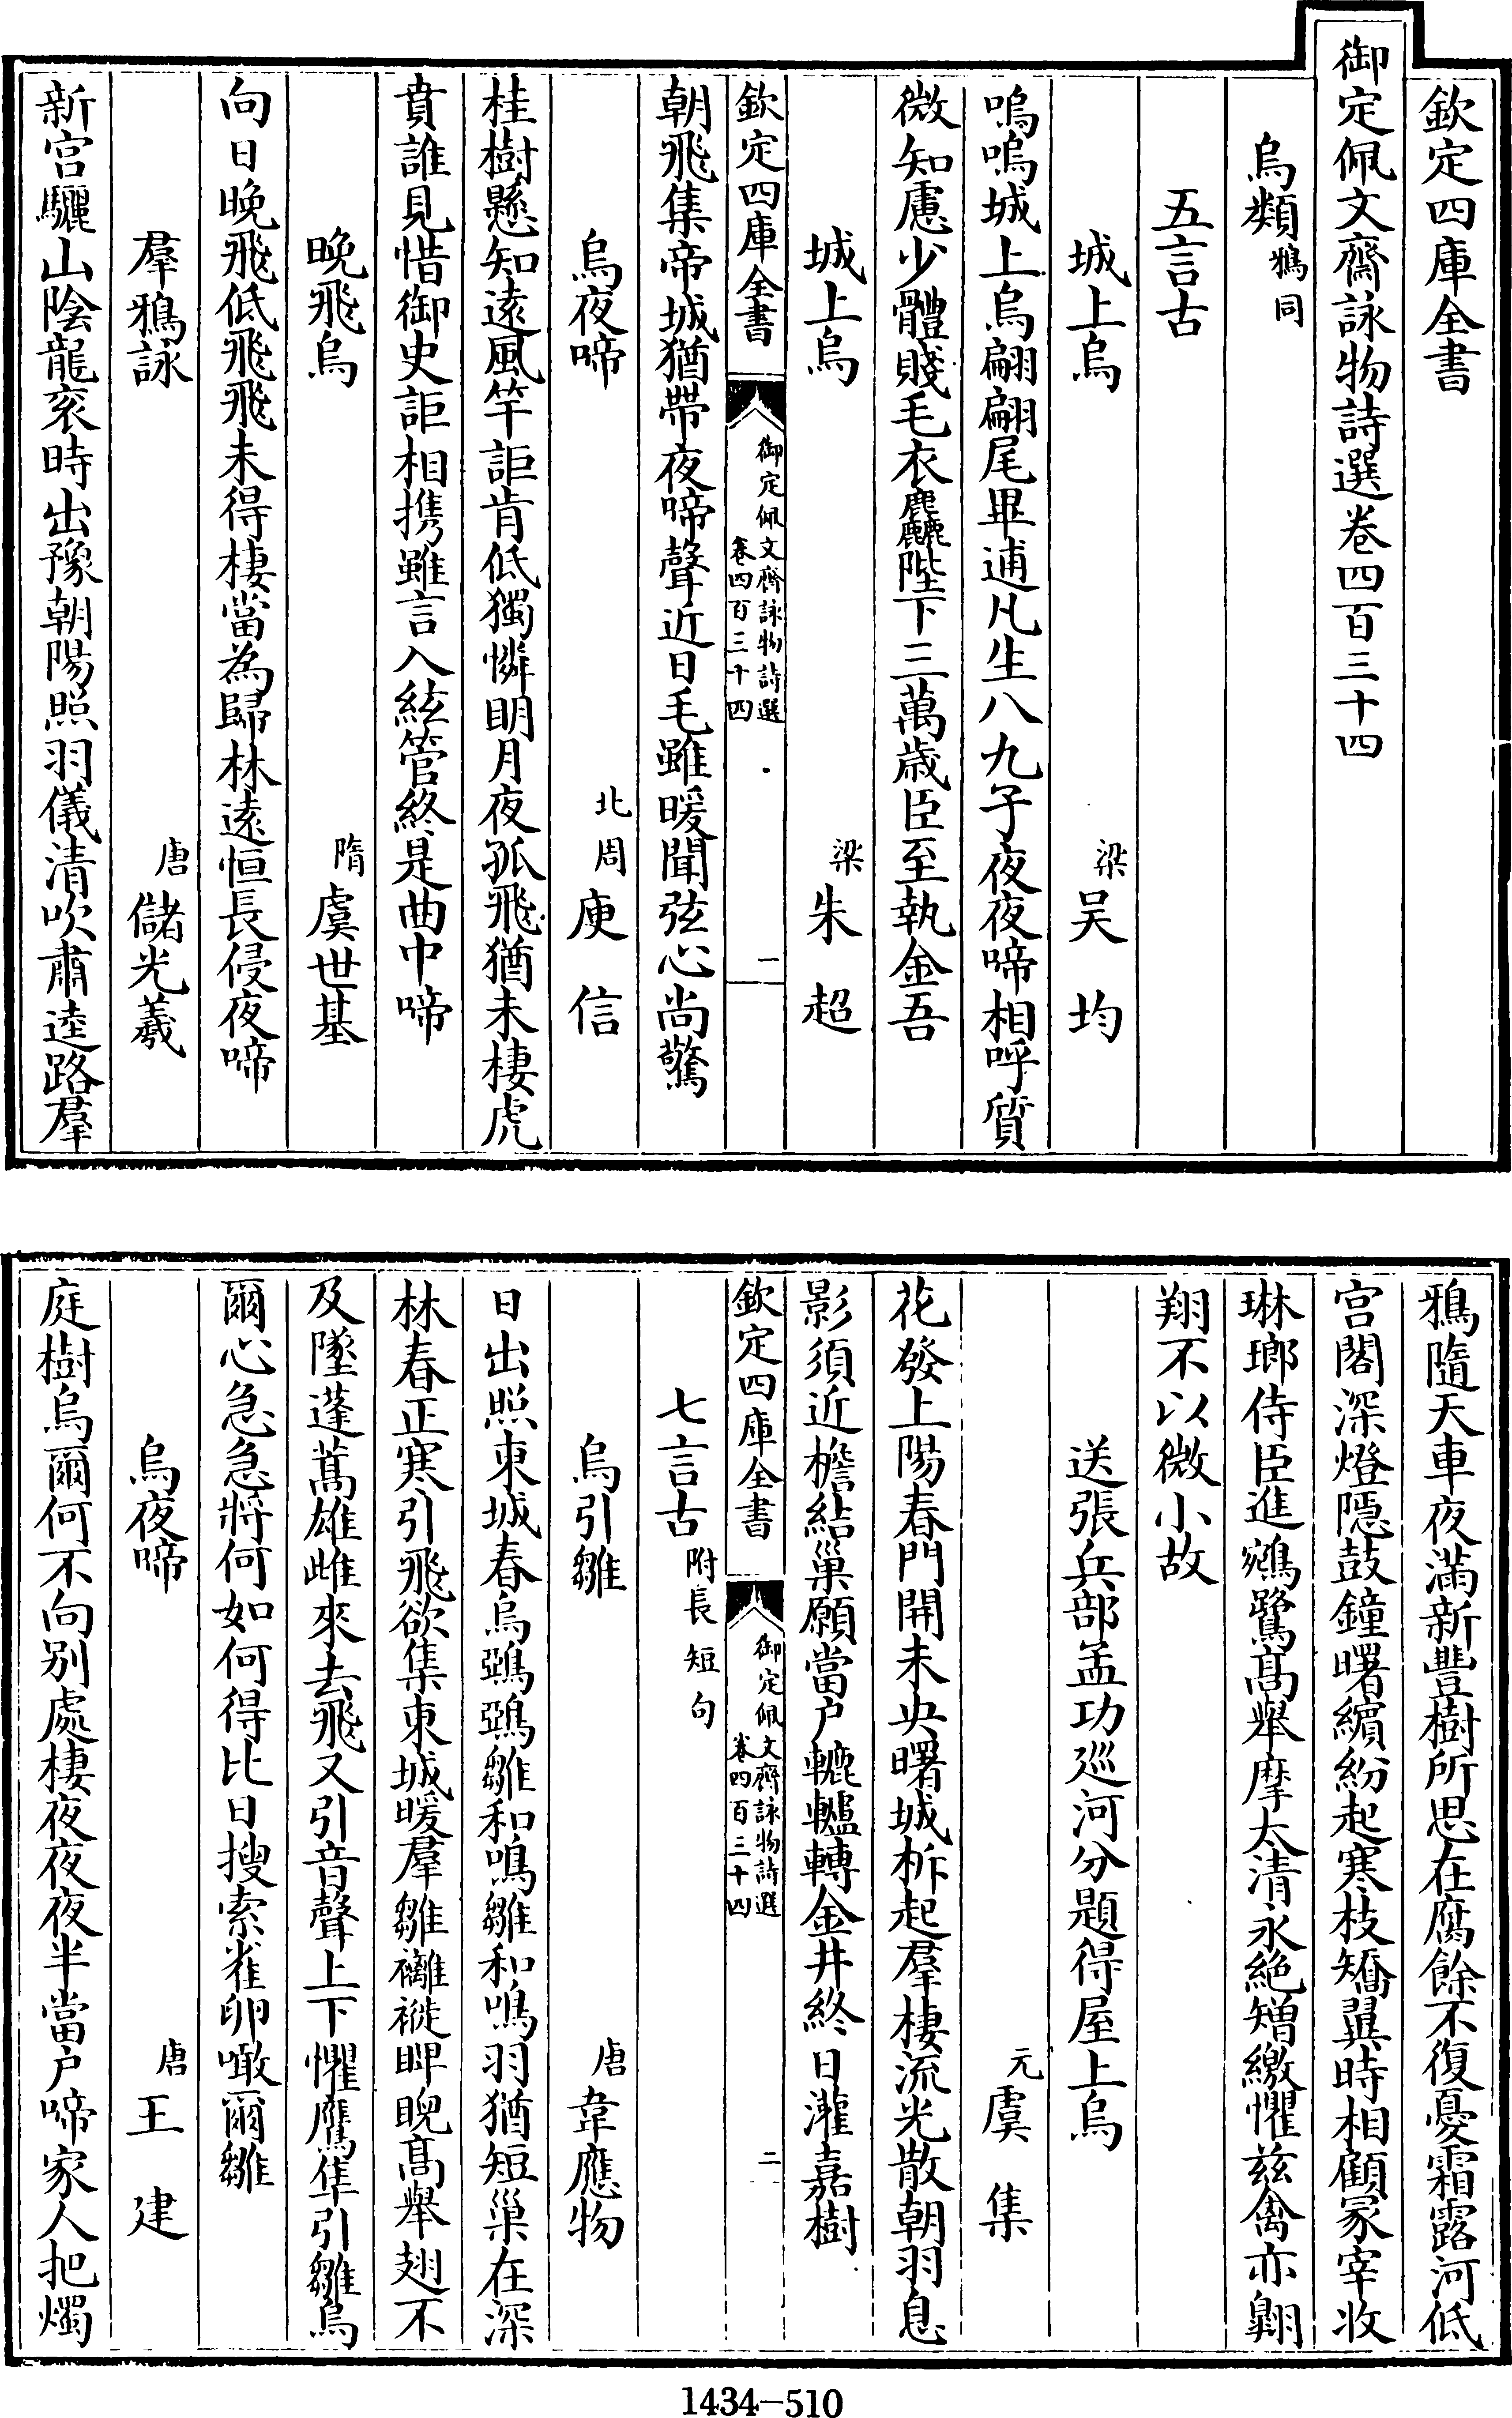 欽定四庫全書
御定佩文齋詠物詩選卷四百三十四
烏類鵶同
五言古
城上烏 梁吴均
嗚嗚城上烏翩翩尾畢逋凡生八九子夜夜啼相呼質
微知慮少體賤毛衣麤陛下三萬歳臣至執金吾
城上烏 梁朱超
欽定四庫全書 御定佩文齋詠物詩選 卷四百三十四 一
朝飛集帝城猶帶夜啼聲近日毛雖暖聞弦心尚驚
烏夜啼 北周庾信
桂樹懸知逺風竿詎肯低獨憐明月夜孤飛猶未棲虎
賁誰見惜御史詎相擕雖言入絃管終是曲中啼
晚飛烏 隋虞世基
向日晚飛低飛飛未得棲當為歸林逺恒長侵夜啼
羣鴉詠 唐儲光羲
新宫驪山陰龍衮時出豫朝陽照羽儀清吹肅逵路羣
鴉隨天車夜滿新豐樹所思在腐餘不復憂霜露河低
宫閣深燈隠鼓鐘曙繽紛起寒枝矯翼時相顧冢宰收
琳瑯侍臣進鵷鷺髙舉摩太清永絶矰繳懼兹禽亦翺
翔不以微小故
送張兵部孟功巡河分題得屋上烏
元虞集
花發上陽春門開未央曙城柝起羣棲流光散朝羽息
影須近檐結巢願當户轆轤轉金井終日灌嘉樹
欽定四庫全書 御定佩文齋詠物詩選 卷四百三十四 二
七言古附長短句
烏引雛 唐韋應物
日出照東城春烏鵶鵶雛和鳴雛和鳴羽猶短巢在深
林春正寒引飛欲集東城暖羣雛襹褷睥睨髙舉翅不
及墜蓬蒿雄雌來去飛又引音聲上下懼鷹隼引雛烏
爾心急急將何如何得比日搜索雀卵噉爾雛
烏夜啼 唐王建
庭樹烏爾何不向别處棲夜夜夜半當户啼家人把燭
1434-510